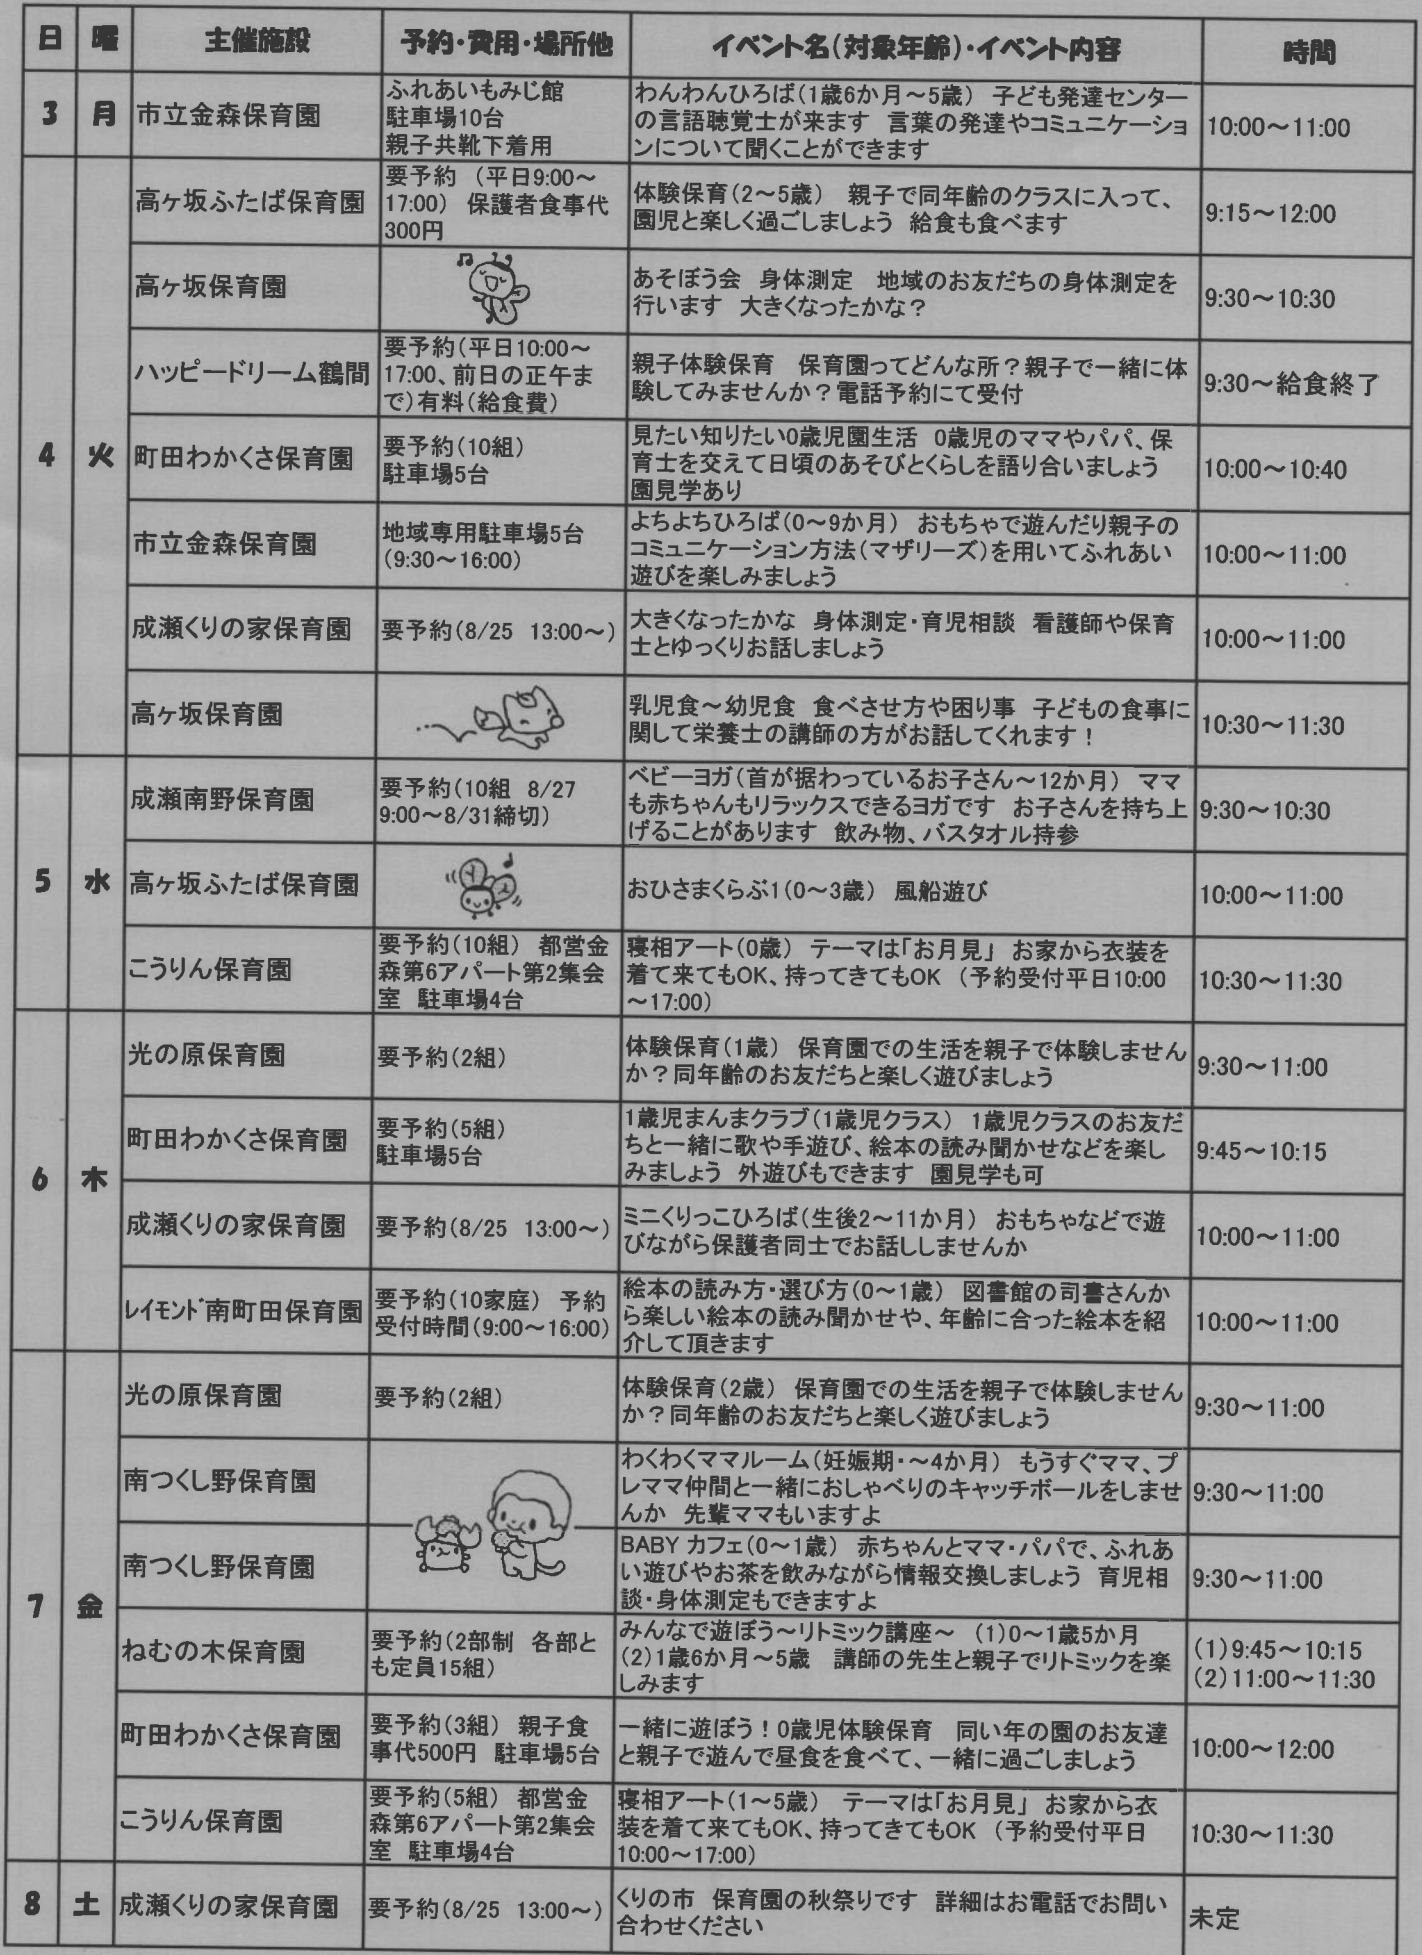 日 曜 主催施設 予約・費用・場所他 イベント名(対象年齢)・イベント内容 時間
3 月 市立金森保育園
ふれあいもみじ館
駐車場10台
親子共靴下着用
わんわんひろば(1歳6か月~5歳) 子ども発達センター
の言語聴覚士が来ます 言葉の発達やコミュニケーショ
ンについて聞くことができます
10:00~11:00
4 火
高ヶ坂ふたば保育園
要予約 (平日9:00~
17:00) 保護者食事代
300円
体験保育(2~5歳) 親子で同年齢のクラスに入って、
園児と楽しく過ごしましょう 給食も食べます
9:15~12:00
高ヶ坂保育園
あそぼう会 身体測定 地域のお友だちの身体測定を
行います 大きくなったかな?
9:30~10:30
ハッピードリーム鶴間
要予約(平日10:00~
17:00、前日の正午ま
で)有料(給食費)
親子体験保育 保育園ってどんな所?親子で一緒に体
験してみませんか?電話予約にて受付
9:30~給食終了
町田わかくさ保育園
要予約(10組)
駐車場5台
見たい知りたい0歳児園生活 0歳児のママやパパ、保
育士を交えて日頃のあそびとくらしを語り合いましょう
園見学あり
10:00~10:40
市立金森保育園
地域専用駐車場5台
(9:30~16:00)
よちよちひろば(0~9か月) おもちゃで遊んだり親子の
コミュニケーション方法(マザリーズ)を用いてふれあい
遊びを楽しみましょう
10:00~11:00
成瀬くりの家保育園
要予約(8/25 13:00~)
大きくなったかな 身体測定・育児相談 看護師や保育
士とゆっくりお話しましょう
10:00~11:00
高ヶ坂保育園
乳児食~幼児食 食べさせ方や困り事 子どもの食事に
関して栄養士の講師の方がお話してくれます!
10:30~11:30
5 水
成瀬南野保育園
要予約(10組 8/27
9:00~8/31締切)
ベビーヨガ(首が据わっているお子さん~12か月) ママ
も赤ちゃんもリラックスできるヨガです お子さんを持ち上
げることがあります 飲み物、バスタオル持参
9:30~10:30
高ヶ坂ふたば保育園
おひさまくらぶ1(0~3歳) 風船遊び
10:00~11:00
こうりん保育園
要予約(10組) 都営金
森第6アパート第2集会
室 駐車場4台
寝相アート(0歳) テーマは「お月見」 お家から衣装を
着て来てもOK、持ってきてもOK (予約受付平日10:00
~17:00)
10:30~11:30
6 木
光の原保育園
要予約(2組)
体験保育(1歳) 保育園での生活を親子で体験しません
か?同年齢のお友だちと楽しく遊びましょう
9:30~11:00
町田わかくさ保育園
要予約(5組)
駐車場5台
1歳児まんまクラブ(1歳児クラス) 1歳児クラスのお友だ
ちと一緒に歌や手遊び、絵本の読み聞かせなどを楽し
みましょう 外遊びもできます 園見学も可
9:45~10:15
成瀬くりの家保育園
要予約(8/25 13:00~)
ミニくりっこひろば(生後2~11か月) おもちゃなどで遊
びながら保護者同士でお話ししませんか
10:00~11:00
レイモンド南町田保育園
要予約(10家庭) 予約
受付時間(9:00~16:00)
絵本の読み方・選び方(0~1歳) 図書館の司書さんか
ら楽しい絵本の読み聞かせや、年齢に合った絵本を紹
介して頂きます
10:00~11:00
7 金
光の原保育園
要予約(2組)
体験保育(2歳) 保育園での生活を親子で体験しません
か?同年齢のお友だちと楽しく遊びましょう
9:30~11:00
南つくし野保育園
わくわくママルーム(妊娠期・~4か月) もうすぐママ、プ
レママ仲間と一緒におしゃべりのキャッチボールをしませ
んか 先輩ママもいますよ
9:30~11:00
南つくし野保育園
BABY カフェ(0~1歳) 赤ちゃんとママ・パパで、ふれあ
い遊びやお茶を飲みながら情報交換しましょう 育児相
談・身体測定もできますよ
9:30~11:00
ねむの木保育園
要予約(2部制 各部と
も定員15組)
みんなで遊ぼう~リトミック講座~ (1)0~1歳5か月
(2)1歳6か月~5歳 講師の先生と親子でリトミックを楽
しみます
(1)9:45~10:15
(2)11:00~11:30
町田わかくさ保育園
要予約(3組) 親子食
事代500円 駐車場5台
一緒に遊ぼう!0歳児体験保育 同い年の園のお友達
と親子で遊んで昼食を食べて、一緒に過ごしましょう
10:00~12:00
こうりん保育園
要予約(5組) 都営金
森第6アパート第2集会
室 駐車場4台
寝相アート(1~5歳) テーマは「お月見」 お家から衣
装を着て来てもOK、持ってきてもOK (予約受付平日
10:00~17:00)
10:30~11:30
8 土 成瀬くりの家保育園
要予約(8/25 13:00~)
くりの市 保育園の秋祭りです 詳細はお電話でお問い
合わせください
未定